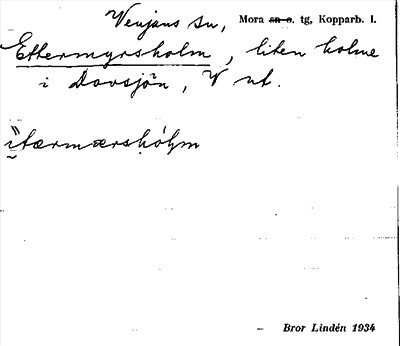 Venjans sn, Mora sn o. tg, Kopparb. l.
Ettermyrsholm, liten holme
i Dovsjön, V ut.
ìtærmærshólm
– Bror Lindén 1934